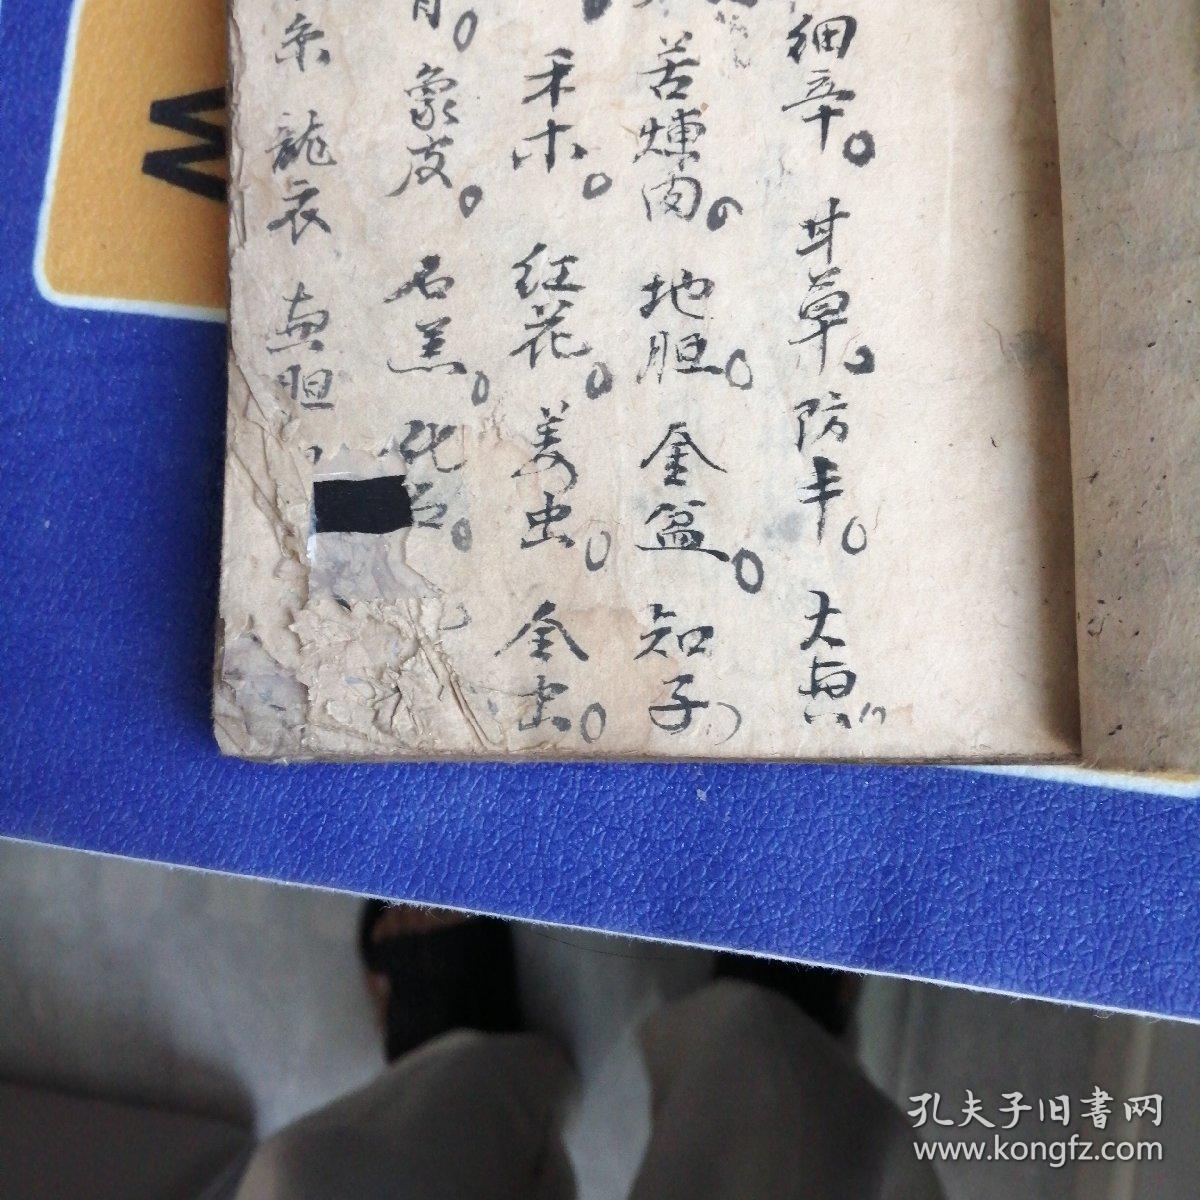 细辛。甘草。防丰。大
苦煉肉。地胆。金盆。知子
禾木。红花。美虫。全虫。
象皮。石羔。
龍衣 胆
W
孔夫子旧書网
www.kongfz.com